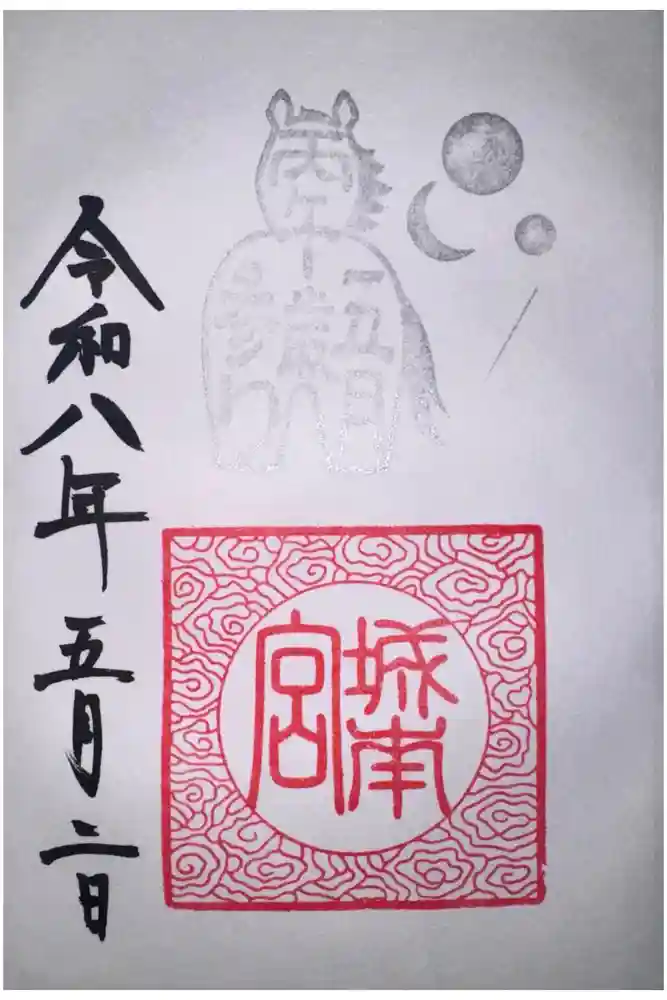 丙午
城南
宮
令和八年五月二日